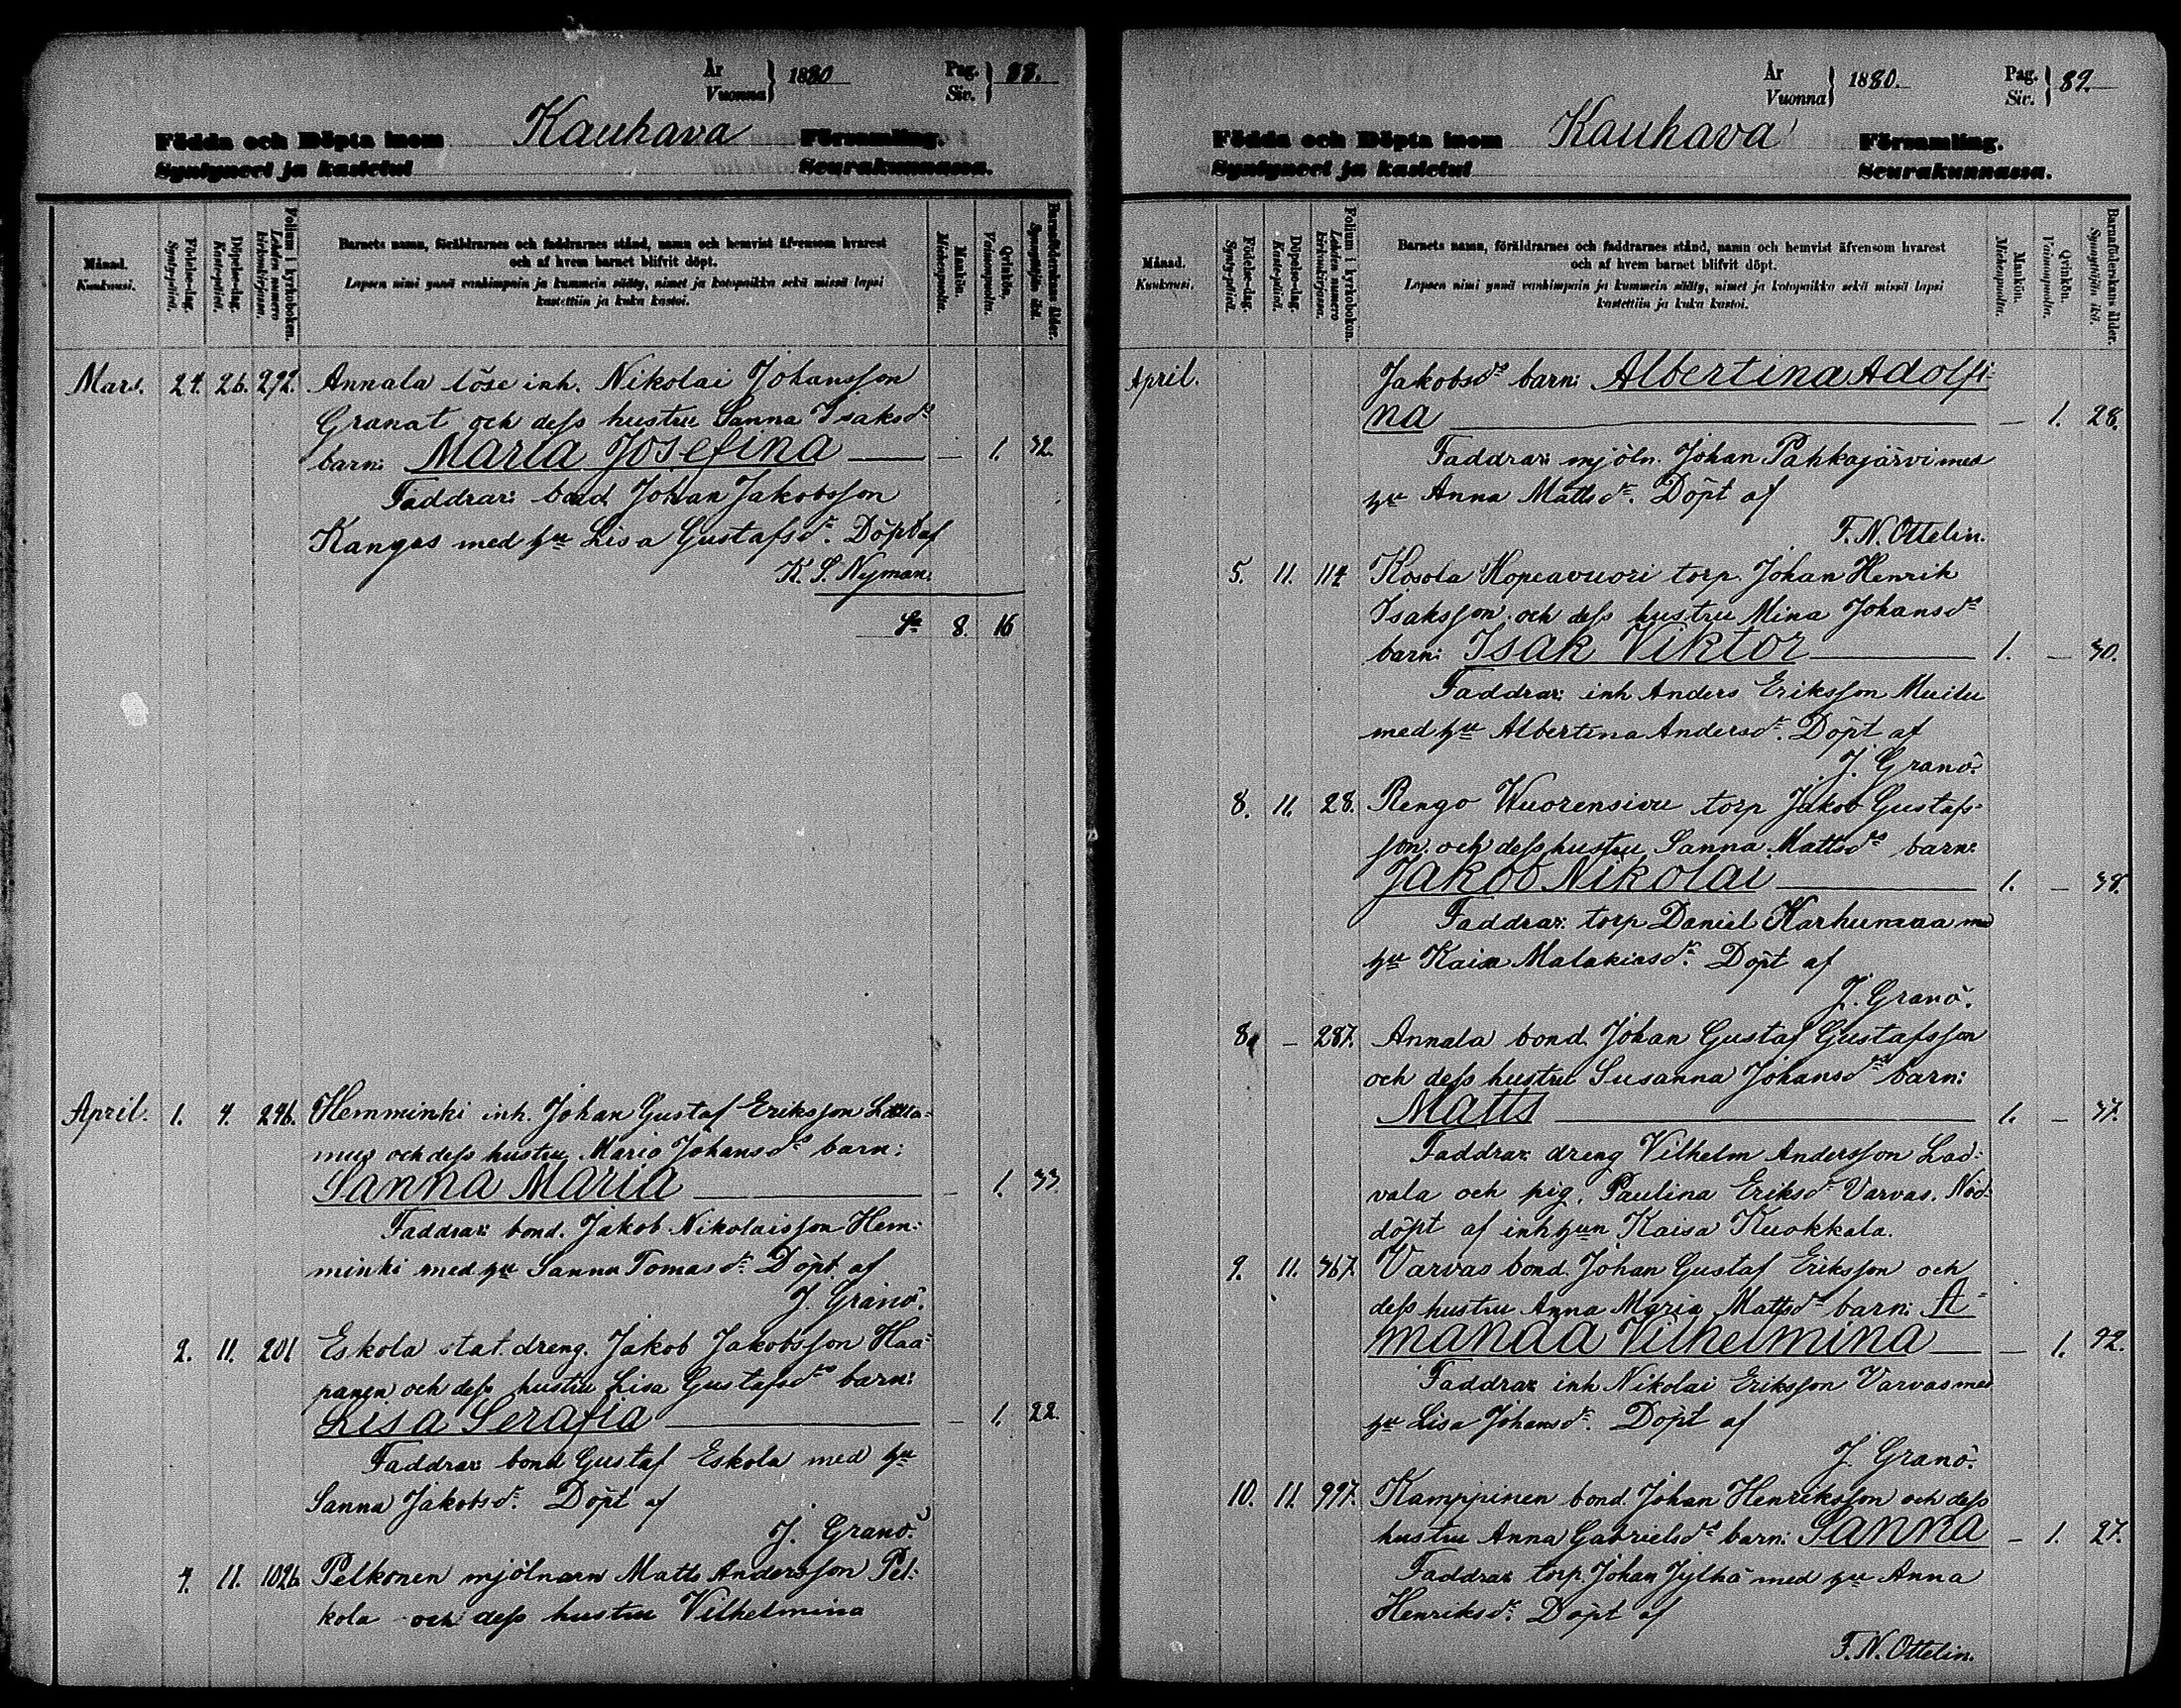 År
Vuonna } 1880
Pag.
Siv. } 88.
Födda och Döpta inom Kauhava Församling.
Syntyneet ja kastetut Seurakunnassa.
Månad.
Kuukausi.
Födelse-dag.
Synty-päivä.
Döpelse-dag.
Kaste-päivä.
Folium i kyrkoboken.
Lehden numero kirkonkirjassa.
Barnets namn, föräldrarnes och faddrarnes stånd, namn och hemvist äfvensom hvarest
och af hvem barnet blifvit döpt.
Lapsen nimi ynnä vanhimpain ja kummein sääty, nimet ja kotopaikka sekä missä lapsi
kastettiin ja kuka kastoi.
Mankön.
Miehenpuolta.
Qvinkön.
Vaimonpuolta.
Barnaföderskans ålder.
Synnyttäjän ikä.
Mars. 24. 26. 292. Annala löse inh. Nikolai Johansson
Granat och dess hustru Sanna Isaksdrs
barn: Maria Josefina — 1. 32.
Faddrar: bond Johan Jakobsson
Kangas med hu Lisa Gustafsdr. Döpt af
K. S. Nyman.
Sa 8. 16
April. 1. 4. 246. Hemminki inh. Johan Gustaf Eriksson
mus och dess hustru Maria Johansdrs barn:
Sanna Maria — 1. 33.
Faddrar: bond. Jakob Nikolaisson Hem-
minki med hu Sanna Tomasdr. Döpt af
J. Granö.
2. 11. 201 Eskola stat. dreng. Jakob Jakobsson Haa-
panen och dess hustru Lisa Gustafsdrs barn:
Lisa Serafia — 1. 22.
Faddrar: bond Gustaf Eskola med hu
Sanna Jakobsdr. Döpt af
J. Granö.
4. 11. 1026. Pelkonen mjölnarn Matts Andersson Pel-
kola och dess hustru Vilhelmina
År
Vuonna } 1880.
Pag.
Siv. } 89.
Födda och Döpta inom Kauhava Församling.
Syntyneet ja kastetut Seurakunnassa.
Månad.
Kuukausi.
Födelse-dag.
Synty-päivä.
Döpelse-dag.
Kaste-päivä.
Folium i kyrkoboken.
Lehden numero kirkonkirjassa.
Barnets namn, föräldrarnes och faddrarnes stånd, namn och hemvist äfvensom hvarest
och af hvem barnet blifvit döpt.
Lapsen nimi ynnä vanhimpain ja kummein sääty, nimet ja kotopaikka sekä missä lapsi
kastettiin ja kuka kastoi.
Mankön.
Miehenpuolta.
Qvinkön.
Vaimonpuolta.
Barnaföderskans ålder.
Synnyttäjän ikä.
April. Jakobsdrs barn: Albertina Adolfi-
na — 1. 28.
Faddrar: mjöln. Johan Pahkajärvi med
hu Anna Mattsdr. Döpt af
F. N. Ottelin.
5. 11. 114 Kosola Hopeavuori torp. Johan Henrik
Isaksson och dess hustru Mina Johansdrs
barn: Isak Viktor 1. — 30.
Faddrar: inh Anders Eriksson Muilu
med hu Albertina Andersdr. Döpt af
J. Granö.
8. 11. 28. Rengo Wuorensivu torp Jakob Gustafs-
son och dess hustru Sanna Mattsdrs barn:
Jakob Nikolai 1. — 38.
Faddrar: torp Daniel Karhumaa med
hu Kaisa Malakiasdr. Döpt af
J. Granö.
8. — 287. Annala bond. Johan Gustaf Gustafsson
och dess hustru Susanna Johansdrs barn:
Matts 1. — 37.
Faddrar: dreng Vilhelm Andersson Lad-
vala och pig. Paulina Eriksdr Varvas. Nöd-
döpt af inh hun Kaisa Kuokkala.
9. 11. 367. Varvas bond. Johan Gustaf Eriksson och
dess hustru Anna Maria Mattsdrs barn: A-
manda Vilhelmina — 1. 42.
Faddrar: inh Nikolai Eriksson Varvas med
hu Lisa Johansdr. Döpt af
J. Granö.
10. 11. 997. Kamppinen bond. Johan Henriksson och dess
hustru Anna Gabrielsdrs barn: Sanna — 1. 27.
Faddrar: torp. Johan Jylhä med hu Anna
Henriksdr. Döpt af
F. N. Ottelin.